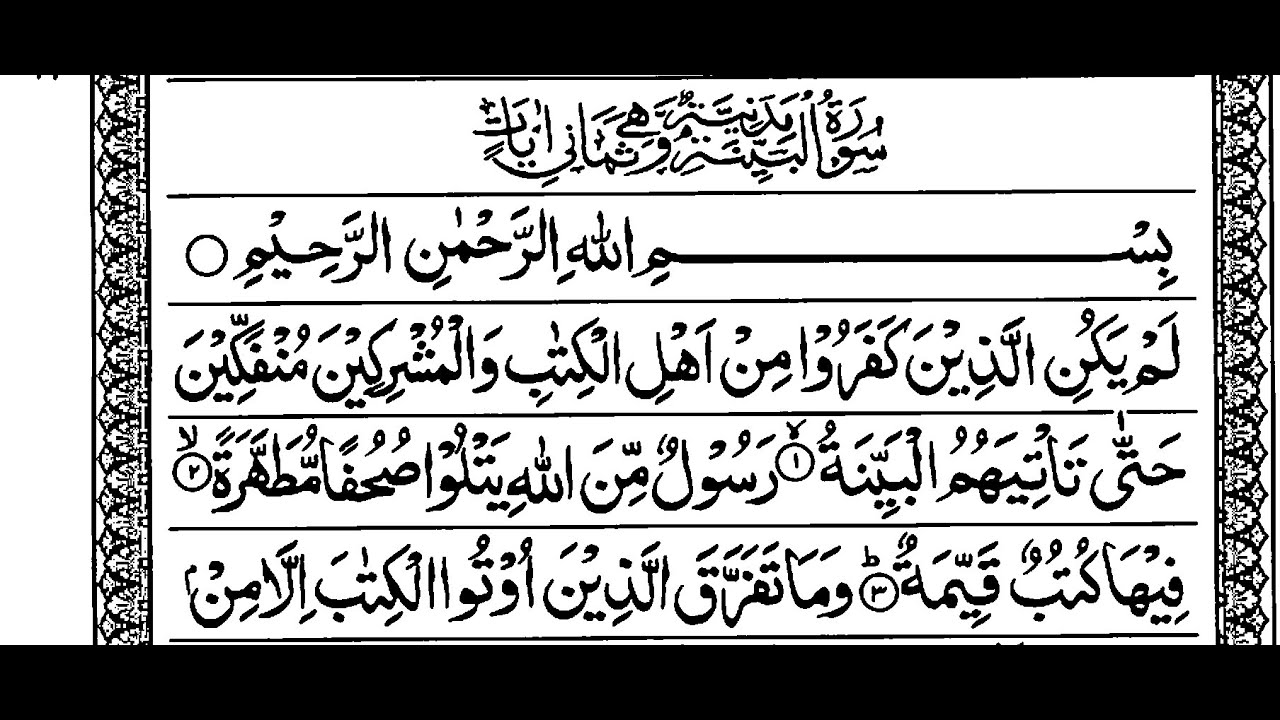 سُوْرَةُ الْبَيِّنَةِ مَدَنِيَّةٌ وَّهِيَ ثَمَانِيْ اٰيَاتٍ
بِسْمِ اللهِ الرَّحْمٰنِ الرَّحِيْمِ
لَمْ يَكُنِ الَّذِيْنَ كَفَرُوْا مِنْ اَهْلِ الْكِتٰبِ وَالْمُشْرِكِيْنَ مُنْفَكِّيْنَ
حَتّٰى تَاْتِيَهُمُ الْبَيِّنَةُ ۙ‏﴿۱﴾ رَسُوْلٌ مِّنَ اللهِ يَتْلُوْا صُحُفًا مُّطَهَّرَةً ۙ‏﴿۲﴾
فِيْهَا كُتُبٌ قَيِّمَةٌ ؕ‏﴿۳﴾ وَمَا تَفَرَّقَ الَّذِيْنَ اُوْتُوا الْكِتٰبَ اِلَّا مِنْۢ